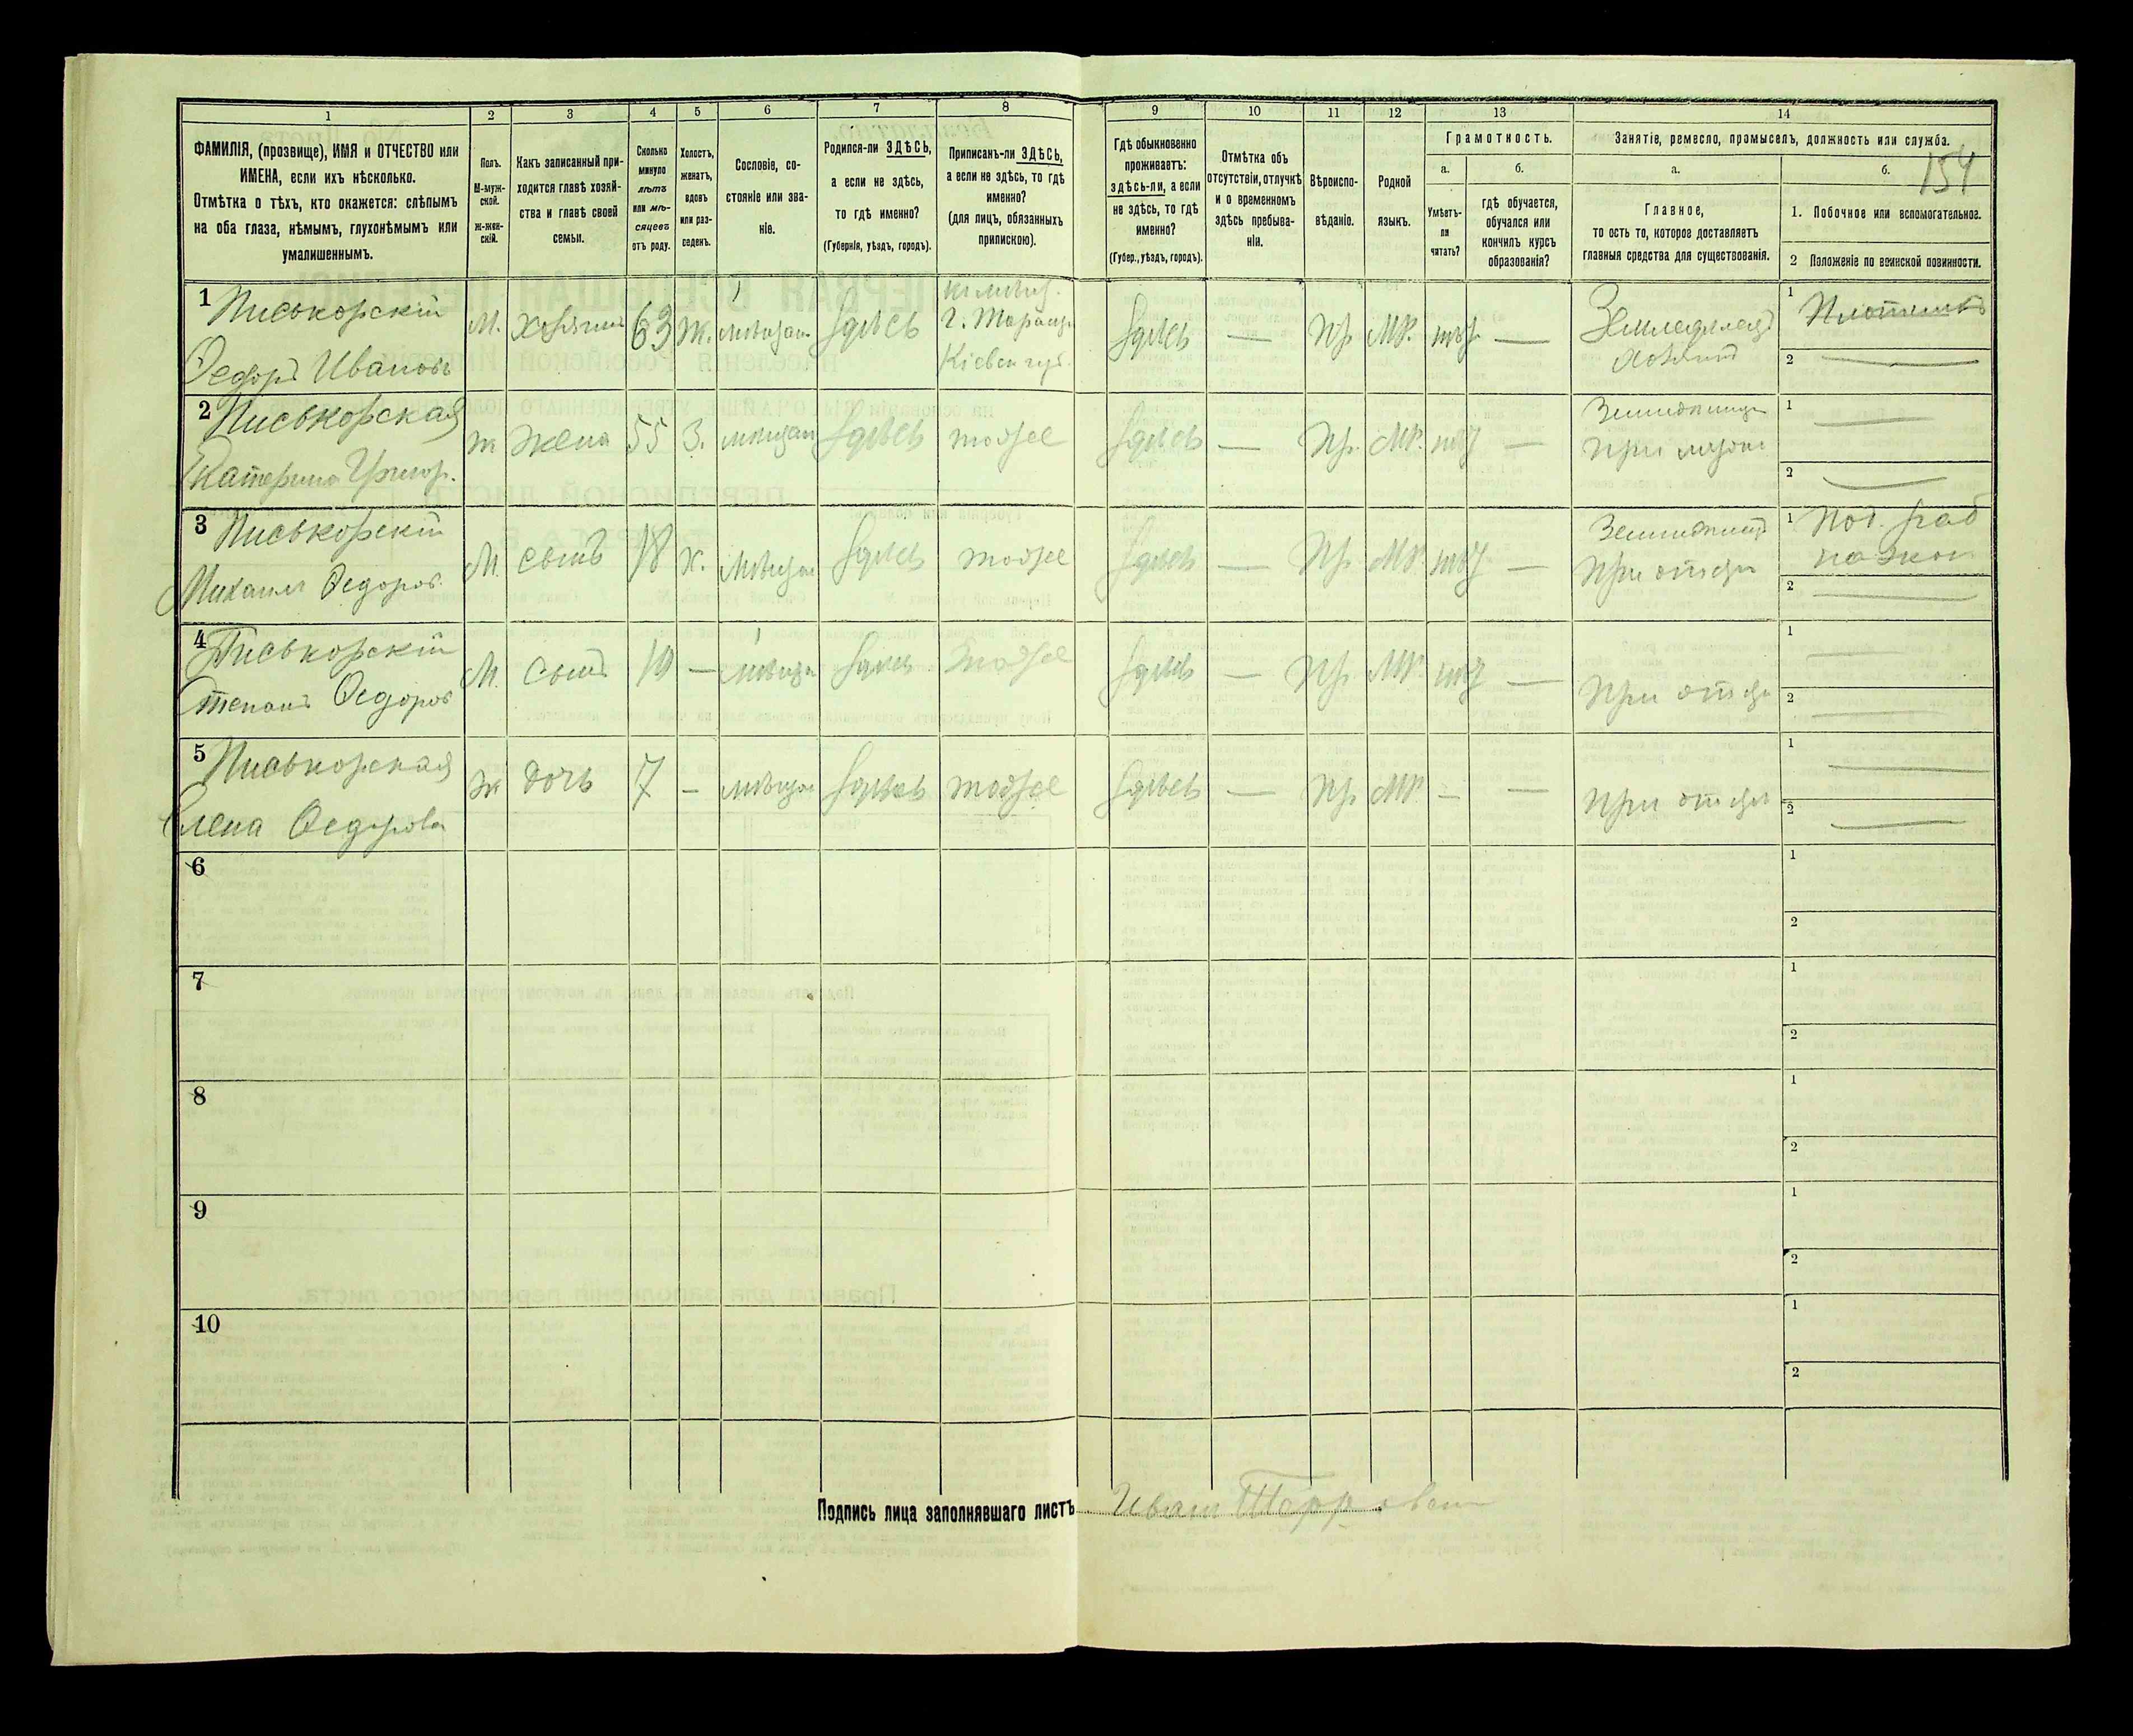 154
1
2
3
4
5
6
7
8
9
10
11
12
13
14
ФАМИЛІЯ, (прозвище), ИМЯ и ОТЧЕСТВО или
ИМЕНА, если ихъ нѣсколько.
Отмѣтка о тѣхъ, кто окажется: слѣпымъ
на оба глаза, нѣмымъ, глухонѣмымъ или
умалишеннымъ.
Полъ.
М-муж-
ской.
ж-жен-
скій.
Какъ записанный при-
ходится главѣ хозяй-
ства и главѣ своей
семьи.
Сколько
минуло
лѣтъ
или мѣ-
сяцевъ
отъ роду.
Холостъ,
женатъ,
вдовъ
или раз-
веденъ.
Сословіе, со-
стояніе или зва-
ніе.
Родился-ли ЗДѢСЬ,
а если не здѣсь,
то гдѣ именно?
(Губернія, уѣздъ, городъ).
Приписанъ-ли ЗДѢСЬ,
а если не здѣсь, то гдѣ
именно?
(для лицъ, обязанныхъ
припискою).
Гдѣ обыкновенно
проживаетъ:
здѣсь-ли, а если
не здѣсь, то гдѣ
именно?
(Губер., уѣздъ, городъ).
Отмѣтка объ
отсутствіи, отлучкѣ
и о временномъ
здѣсь пребыва-
ніи.
Вѣроиспо-
вѣданіе.
Родной
языкъ.
Грамотность.
а.
Умѣетъ-
ли
читать?
б.
гдѣ обучается,
обучался или
кончилъ курсъ
образованія?
Занятіе, ремесло, промыселъ, должность или служба.
а.
Главное,
то есть то, которое доставляетъ
главныя средства для существованія.
б.
1. Побочное или вспомогательное.
2 Положеніе по воинской повинности.
1 Писькорскій
Федоръ Ивановъ
М. хозяинъ 63 Ж. мѣщан. здѣсь
г. Таращ.
Кіевск губ.
здѣсь — Пр. МР. нѣт —
Земледѣлецъ
хозяинъ
1 Плотникъ
2 —
2 Писькорская
Екатерина Григор.
ж жена 55 З. мѣщан здѣсь тоже здѣсь — Пр. МР. нѣт —
при мужѣ
1 —
2 —
3 Писькорскій
Михаилъ Федоров.
М. сынъ 18 Х. мѣщан здѣсь тоже здѣсь — Пр. МР. нѣт —
при отцѣ
1 Под. раб
2 —
4 Писькорскій
Степанъ Федоров
М. сынъ 10 — мѣщан здѣсь тоже здѣсь — Пр. МР. нѣт —
при отцѣ
1 —
2 —
5 Писькорская
Елена Федорова
Ж дочь 7 — мѣщан здѣсь тоже здѣсь — Пр. МР. — —
при отцѣ
1 —
2 —
6
1
2
7
1
2
8
1
2
9
1
2
10
1
2
Подпись лица заполнявшаго листъ Иванъ